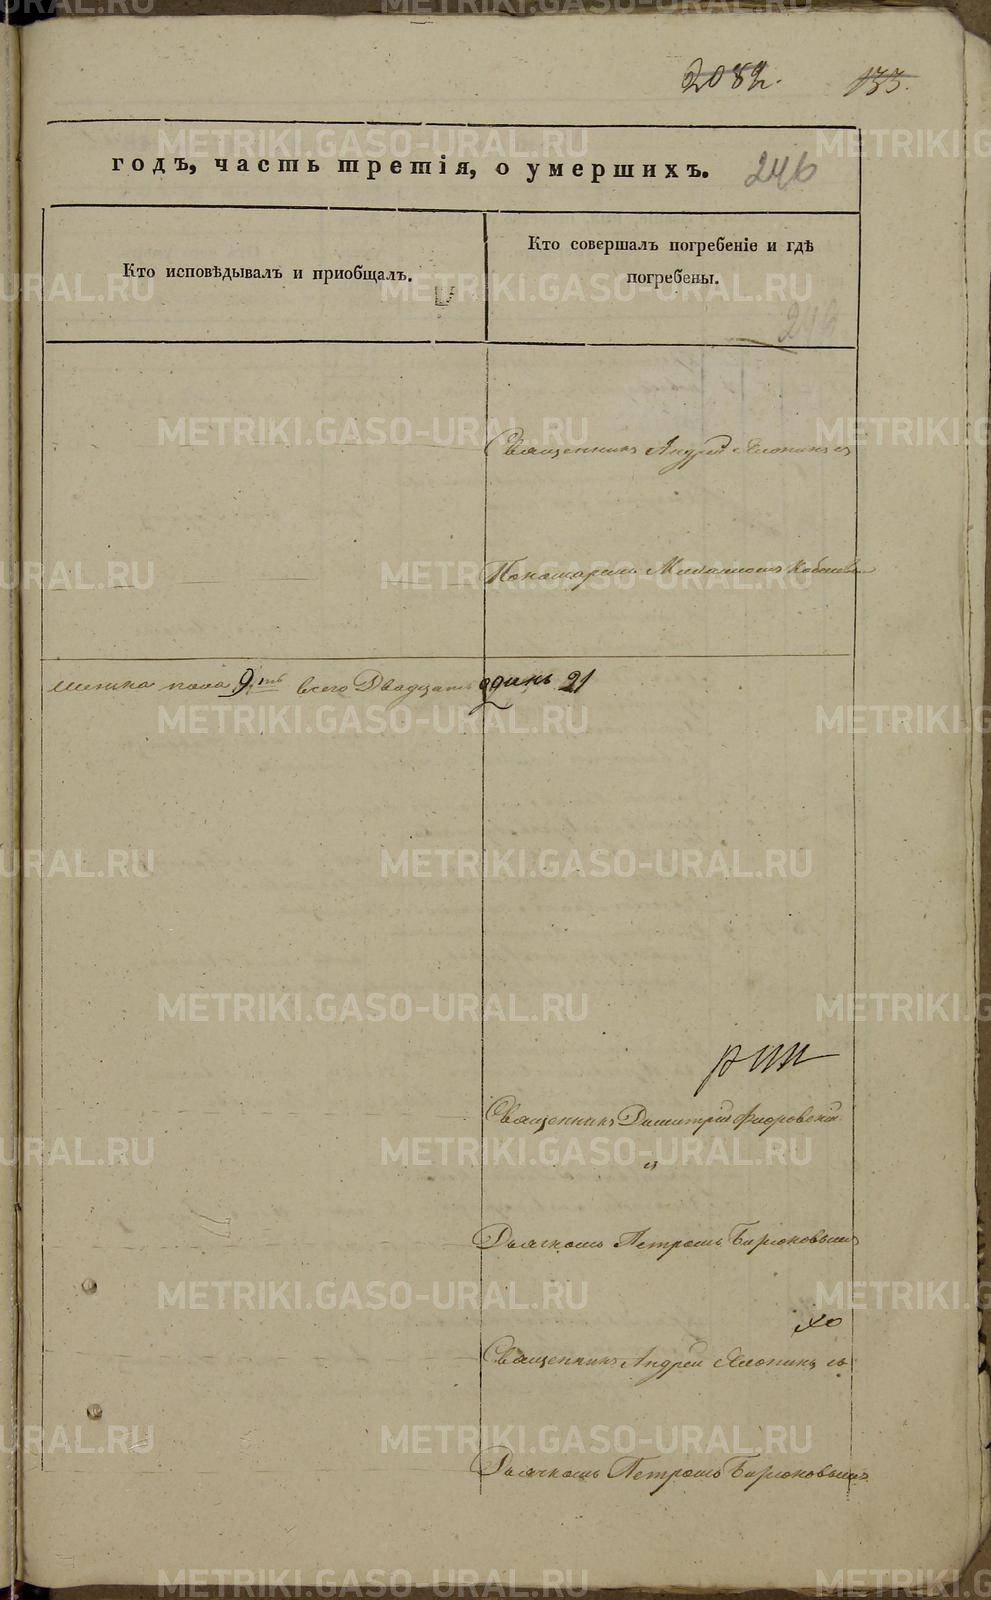 2082. 133.
годъ, часть третія, о умершихъ. 246
Кто исповѣдывалъ и приобщалъ.
Кто совершалъ погребеніе и гдѣ
погребены.
246
Священникъ Андрей Хлопинъ съ
Пономаремъ
женска пола 9.ть всего Двадцать одинъ 21
Священникъ Димитрій Флоровскій
съ
Дьячкомъ Петромъ Бирюковымъ
Священникъ Андрей Хлопинъ съ
Дьячкомъ Петромъ Бирюковымъ
METRIKI.GASO-URAL.RU